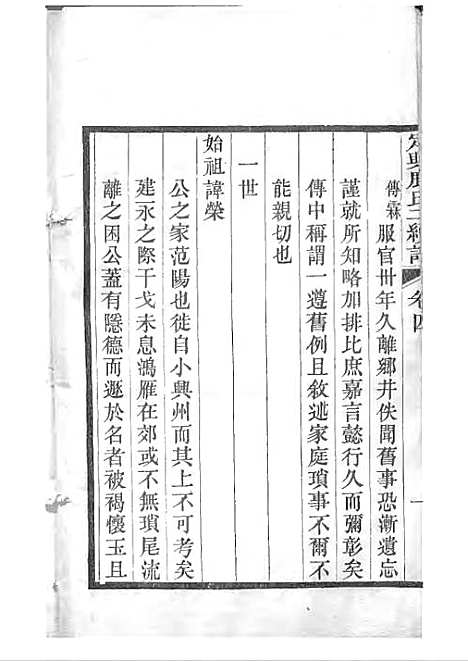 定興鹿氏二續譜 卷四 一
傳霖服官卅年久離鄉井佚聞舊事恐漸遺忘
謹就所知略加排比庶嘉言懿行久而彌彰矣
傳中稱謂一遵舊例且敘述家庭瑣事不爾不
能親切也
一世
始祖諱榮
公之家范陽也徙自小興州而其上不可考矣
建永之際干戈未息鴻雁在郊或不無瑣尾流
離之困公蓋有隱德而遯於名者被褐懷玉且